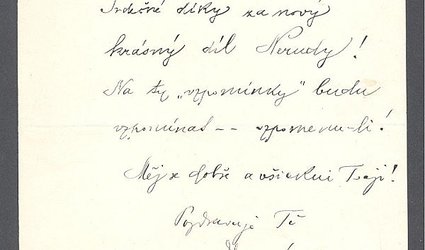 Srdečné díky za nový
krásný díl Nerudy!
Na ty „vzpomínky" budu
vzpomínat -- vzpomenu-li!
Měj se dobře a všickni Tvoji!
Pozdravuje Tě